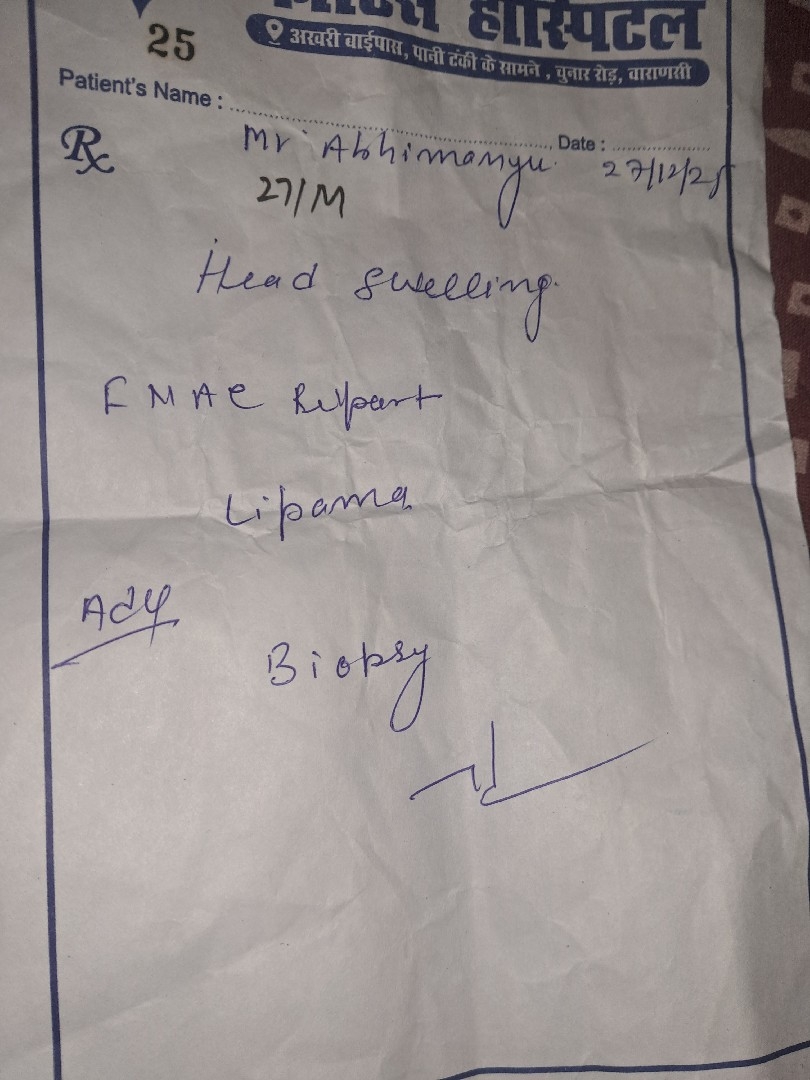 हॉस्पिटल
25
अखरी बाईपास, पानी टंकी के सामने , चुनार रोड़, वाराणसी
Patient's Name : Date :
Rx Mr Abhimanyu 27/12/25
27/M
Head swelling.
FMAC Report
Lipama
Adv
Biopsy